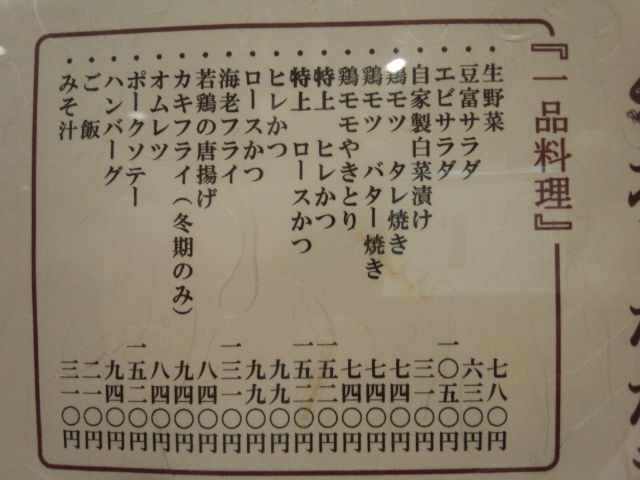 『一品料理』
・生野菜 七八〇円
・豆富サラダ 六三〇円
・エビサラダ 一〇五〇円
・自家製白菜漬け 三一〇円
・鶏モツ タレ焼き 七四〇円
・鶏モツ バター焼き 七四〇円
・鶏モモやきとり 七四〇円
・特上 ヒレかつ 一五二〇円
・特上 ロースかつ 一五二〇円
・ヒレかつ 九九〇円
・ロースかつ 九九〇円
・海老フライ 一三一〇円
・若鶏の唐揚げ 八四〇円
・カキフライ(冬期のみ) 九四〇円
・オムレツ 八四〇円
・ポークソテー 一五二〇円
・ハンバーグ 九四〇円
・ご飯 二一〇円
・みそ汁 三一〇円